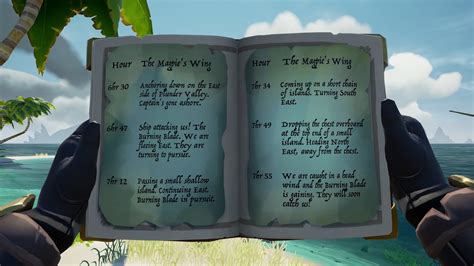 Hour The Magpie's Wing
6hr 30 Anchoring down on the East
side of Plunder Valley.
Captain's gone ashore.
6hr 47 Ship attacking us! The
Burning Blade. We are
fleeing East. They are
turning to pursue.
7hr 12 Passing a small shallow
island. Continuing East.
Burning Blade in pursuit.
Hour The Magpie's Wing
7hr 34 Coming up on a short chain
of island. Turning South
East.
7hr 49 Dropping the chest overboard
at the top end of a small
island. Heading North
East, away from the chest.
7hr 55 We are caught in a head
wind and the Burning Blade
is gaining. They will soon
catch us!